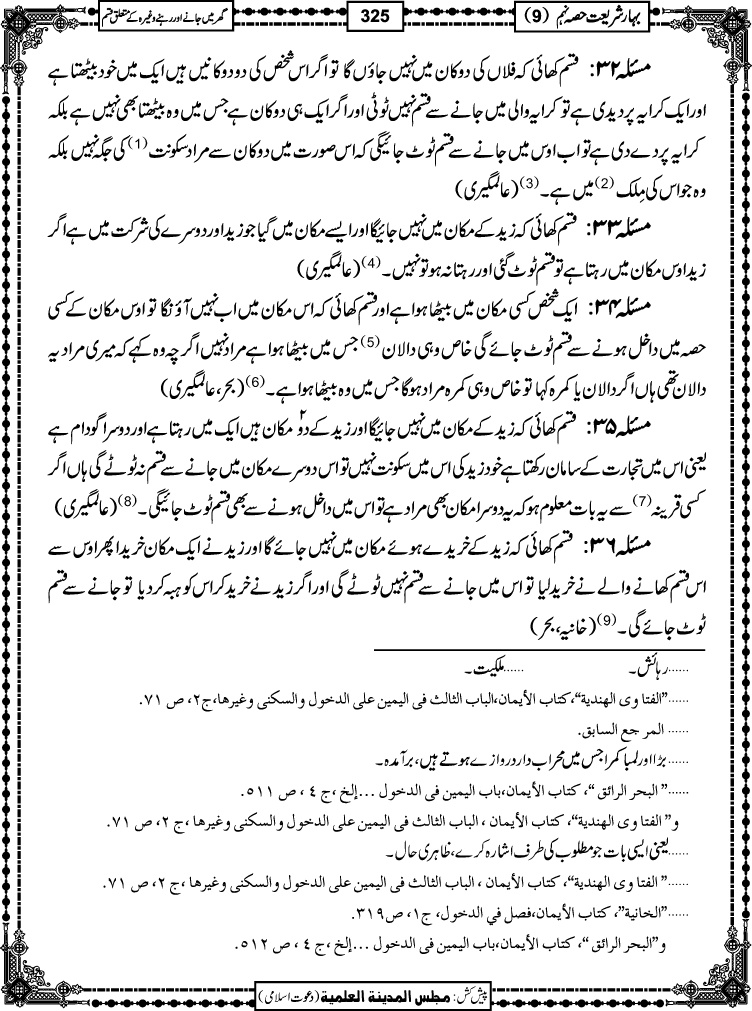 بہار شریعت حصہ نہم (9)
325
گھر میں جانے اور رہنے وغیرہ کے متعلق قسم
مسئلہ ۳۲: قسم کھائی کہ فلاں کی دوکان میں نہیں جاؤں گا تو اگر اس شخص کی دو دوکانیں ہیں ایک میں خود بیٹھتا ہے
اور ایک کرایہ پر دیدی ہے تو کرایہ والی میں جانے سے قسم نہیں ٹوٹی اور اگر ایک ہی دوکان ہے جس میں وہ بیٹھتا بھی نہیں ہے بلکہ
کرایہ پر دے دی ہے تو اب اوس میں جانے سے قسم ٹوٹ جائیگی کہ اس صورت میں دوکان سے مراد سکونت (1) کی جگہ نہیں بلکہ
وہ جو اس کی مِلک (2) میں ہے۔ (3) (عالمگیری)
مسئلہ ۳۳: قسم کھائی کہ زید کے مکان میں نہیں جائیگا اور ایسے مکان میں گیا جو زید اور دوسرے کی شرکت میں ہے اگر
زید اوس مکان میں رہتا ہے تو قسم ٹوٹ گئی اور رہتا نہ ہو تو نہیں۔ (4) (عالمگیری)
مسئلہ ۳۴: ایک شخص کسی مکان میں بیٹھا ہوا ہے اور قسم کھائی کہ اس مکان میں اب نہیں آؤنگا تو اوس مکان کے کسی
حصہ میں داخل ہونے سے قسم ٹوٹ جائے گی خاص وہی دالان (5) جس میں بیٹھا ہوا ہے مراد نہیں اگرچہ وہ کہے کہ میری مراد یہ
دالان تھی ہاں اگر دالان یا کمرہ کہا تو خاص وہی کمرہ مراد ہوگا جس میں وہ بیٹھا ہوا ہے۔ (6) (بحر، عالمگیری)
مسئلہ ۳۵: قسم کھائی کہ زید کے مکان میں نہیں جائیگا اور زید کے دو۲ مکان ہیں ایک میں رہتا ہے اور دوسرا گودام ہے
یعنی اس میں تجارت کے سامان رکھتا ہے خود زید کی اس میں سکونت نہیں تو اس دوسرے مکان میں جانے سے قسم نہ ٹوٹے گی ہاں اگر
کسی قرینہ (7) سے یہ بات معلوم ہو کہ یہ دوسرا مکان بھی مراد ہے تو اس میں داخل ہونے سے بھی قسم ٹوٹ جائیگی۔ (8) (عالمگیری)
مسئلہ ۳۶: قسم کھائی کہ زید کے خریدے ہوئے مکان میں نہیں جائے گا اور زید نے ایک مکان خریدا پھر اوس سے
اس قسم کھانے والے نے خرید لیا تو اس میں جانے سے قسم نہیں ٹوٹے گی اور اگر زید نے خرید کر اس کو ہبہ کر دیا تو جانے سے قسم
ٹوٹ جائے گی۔ (9) (خانیہ، بحر)
......رہائش۔ ......ملکیت۔
......"الفتا وی الهندية"،كتاب الأيمان،الباب الثالث فی اليمين علی الدخول والسكنی وغيرها،ج۲، ص ۷۱.
...... المر جع السابق.
...... بڑا اور لمبا کمرا جس میں محراب دار دروازے ہوتے ہیں، برآمدہ۔
......" البحر الرائق "، كتاب الأيمان،باب اليمين فی الدخول ...إلخ ،ج ٤ ، ص ٥١١.
و" الفتا وی الهندية"، كتاب الأيمان ، الباب الثالث فی اليمين علی الدخول والسكنی وغيرها ،ج ۲، ص ۷۱.
......یعنی ایسی بات جو مطلوب کی طرف اشارہ کرے، ظاہری حال۔
......" الفتا وی الهندية"، كتاب الأيمان ، الباب الثالث فی اليمين علی الدخول والسكنی وغيرها ،ج ۲، ص ۷۱.
......"الخانية"، كتاب الأيمان،فصل في الدخول، ج۱، ص۳۱۹.
و"البحر الرائق "، كتاب الأيمان،باب اليمين فی الدخول ...إلخ ،ج ٤ ، ص ٥١٢.
پیش کش: مجلس المدينة العلمية (دعوت اسلامی)